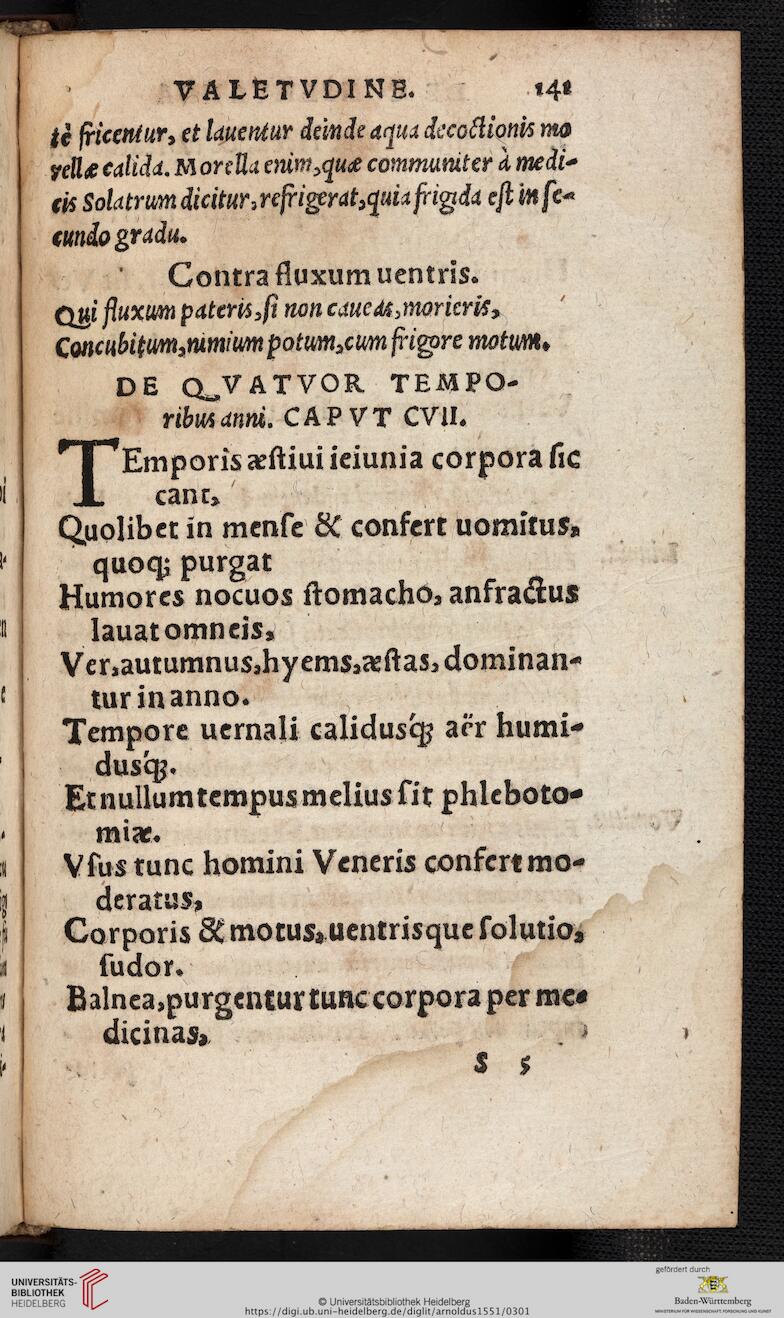 VALETVDINE. 141
tè fricentur, et lauentur deinde aqua decoctionis mo
rellæ calida. Morella enim, quæ communiter à medi-
cis Solatrum dicitur, refrigerat, quia frigida eſt in ſe-
cundo gradu.
Contra fluxum uentris.
Qui fluxum pateris, ſi non caueas, morieris,
Concubitum, nimium potum, cum frigore motum.
DE QVATVOR TEMPO-
ribus anni. CAPVT CVII.
TEmporis æſtiui ieiunia corpora ſic
cant,
Quolibet in menſe & confert uomitus,
quoq; purgat
Humores nocuos ſtomacho, anfractus
lauat omneis,
Ver, autumnus, hyems, æſtas, dominan-
tur in anno.
Tempore uernali calidusq́; aër humi-
dusq́;.
Et nullum tempus melius ſit phleboto-
miæ.
Vſus tunc homini Veneris confert mo-
deratus,
Corporis & motus, uentrisque ſolutio,
ſudor.
Balnea, purgentur tunc corpora per me-
dicinas,
S 5
UNIVERSITÄTS-
BIBLIOTHEK
HEIDELBERG
© Universitätsbibliothek Heidelberg
https://digi.ub.uni-heidelberg.de/diglit/arnoldus1551/0301
gefördert durch
Baden-Württemberg
MINISTERIUM FÜR WISSENSCHAFT, FORSCHUNG UND KUNST